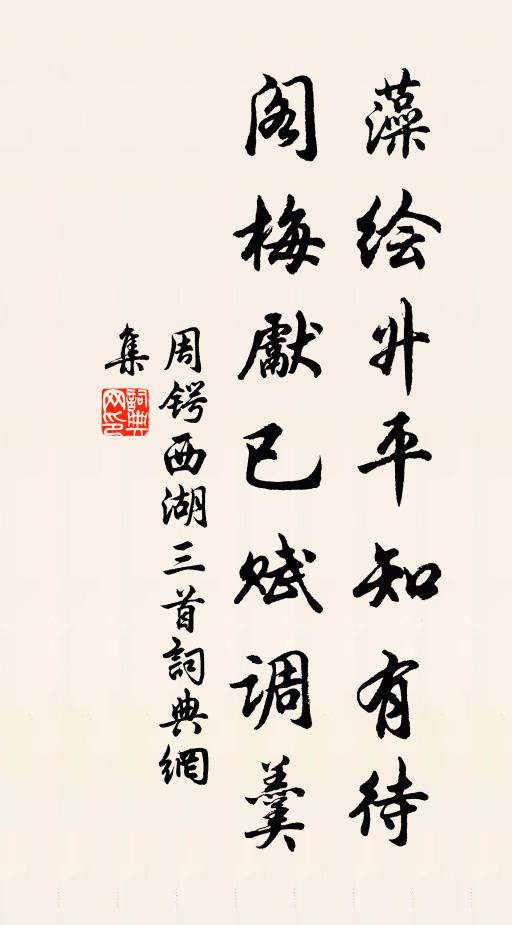 藻绘升平知有待
阁梅献已赋调羹
周锷西湖三首詞典網
集
詞典网印